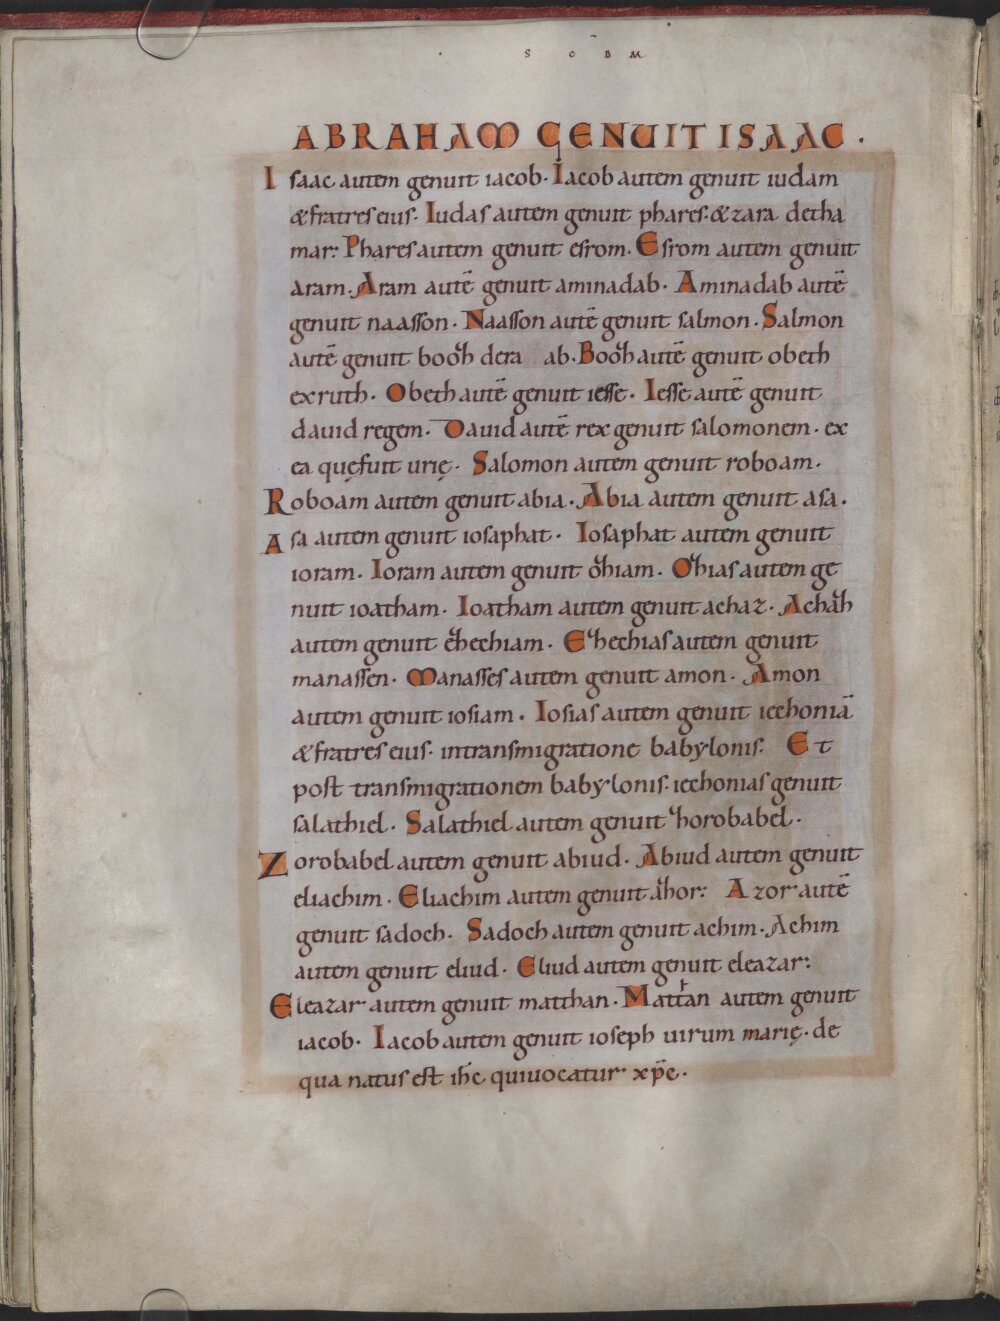 S C̄ D M
ABRAHAM GENUIT ISAAC ·
Isaac autem genuit iacob· Iacob autem genuit iudam
& fratres eius· Iudas autem genuit phares· & zara detha
mar: Phares autem genuit esrom. Esrom autem genuit
aram· Aram autē genuit aminadab· Aminadab autē
genuit naasson· Naasson autē genuit salmon· Salmon
autē genuit booꝣh dera ab· Booꝣh autē genuit obeth
exruth· Obeth autē genuit iesse· Iesse autē genuit
dauid regem· Dauid autē rex genuit salomonem· ex
ea quę fuit urię· Salomon autem genuit roboam·
Roboam autem genuit abia· Abia autem genuit asa·
Asa autem genuit iosaphat· Iosaphat autem genuit
ioram· Ioram autem genuit oꝣhiam· Oꝣhias autem ge
nuit ioatham· Ioatham autem genuit achaz· Achaꝣh
autem genuit eꝣhechiam· Eꝣhechias autem genuit
manassen· Manasses autem genuit amon· Amon
autem genuit iosiam· Iosias autem genuit iechoniā
& fratres eius· intransmigratione babylonis: Et
post transmigrationem babylonis· iechonias genuit
salathiel· Salathiel autem genuit ꝣhorobabel·
Zorobabel autem genuit abiud· Abiud autem genuit
eliachim· Eliachim autem genuit aꝣhor: Azor autē
genuit sadoch· Sadoch autem genuit achim· Achim
autem genuit eliud· Eliud autem genuit eleazar:
Eleazar autem genuit matthan· Matthan autem genuit
iacob· Iacob autem genuit ioseph uirum marię· de
qua natus est ih̄c quiuocatur xp̄c·